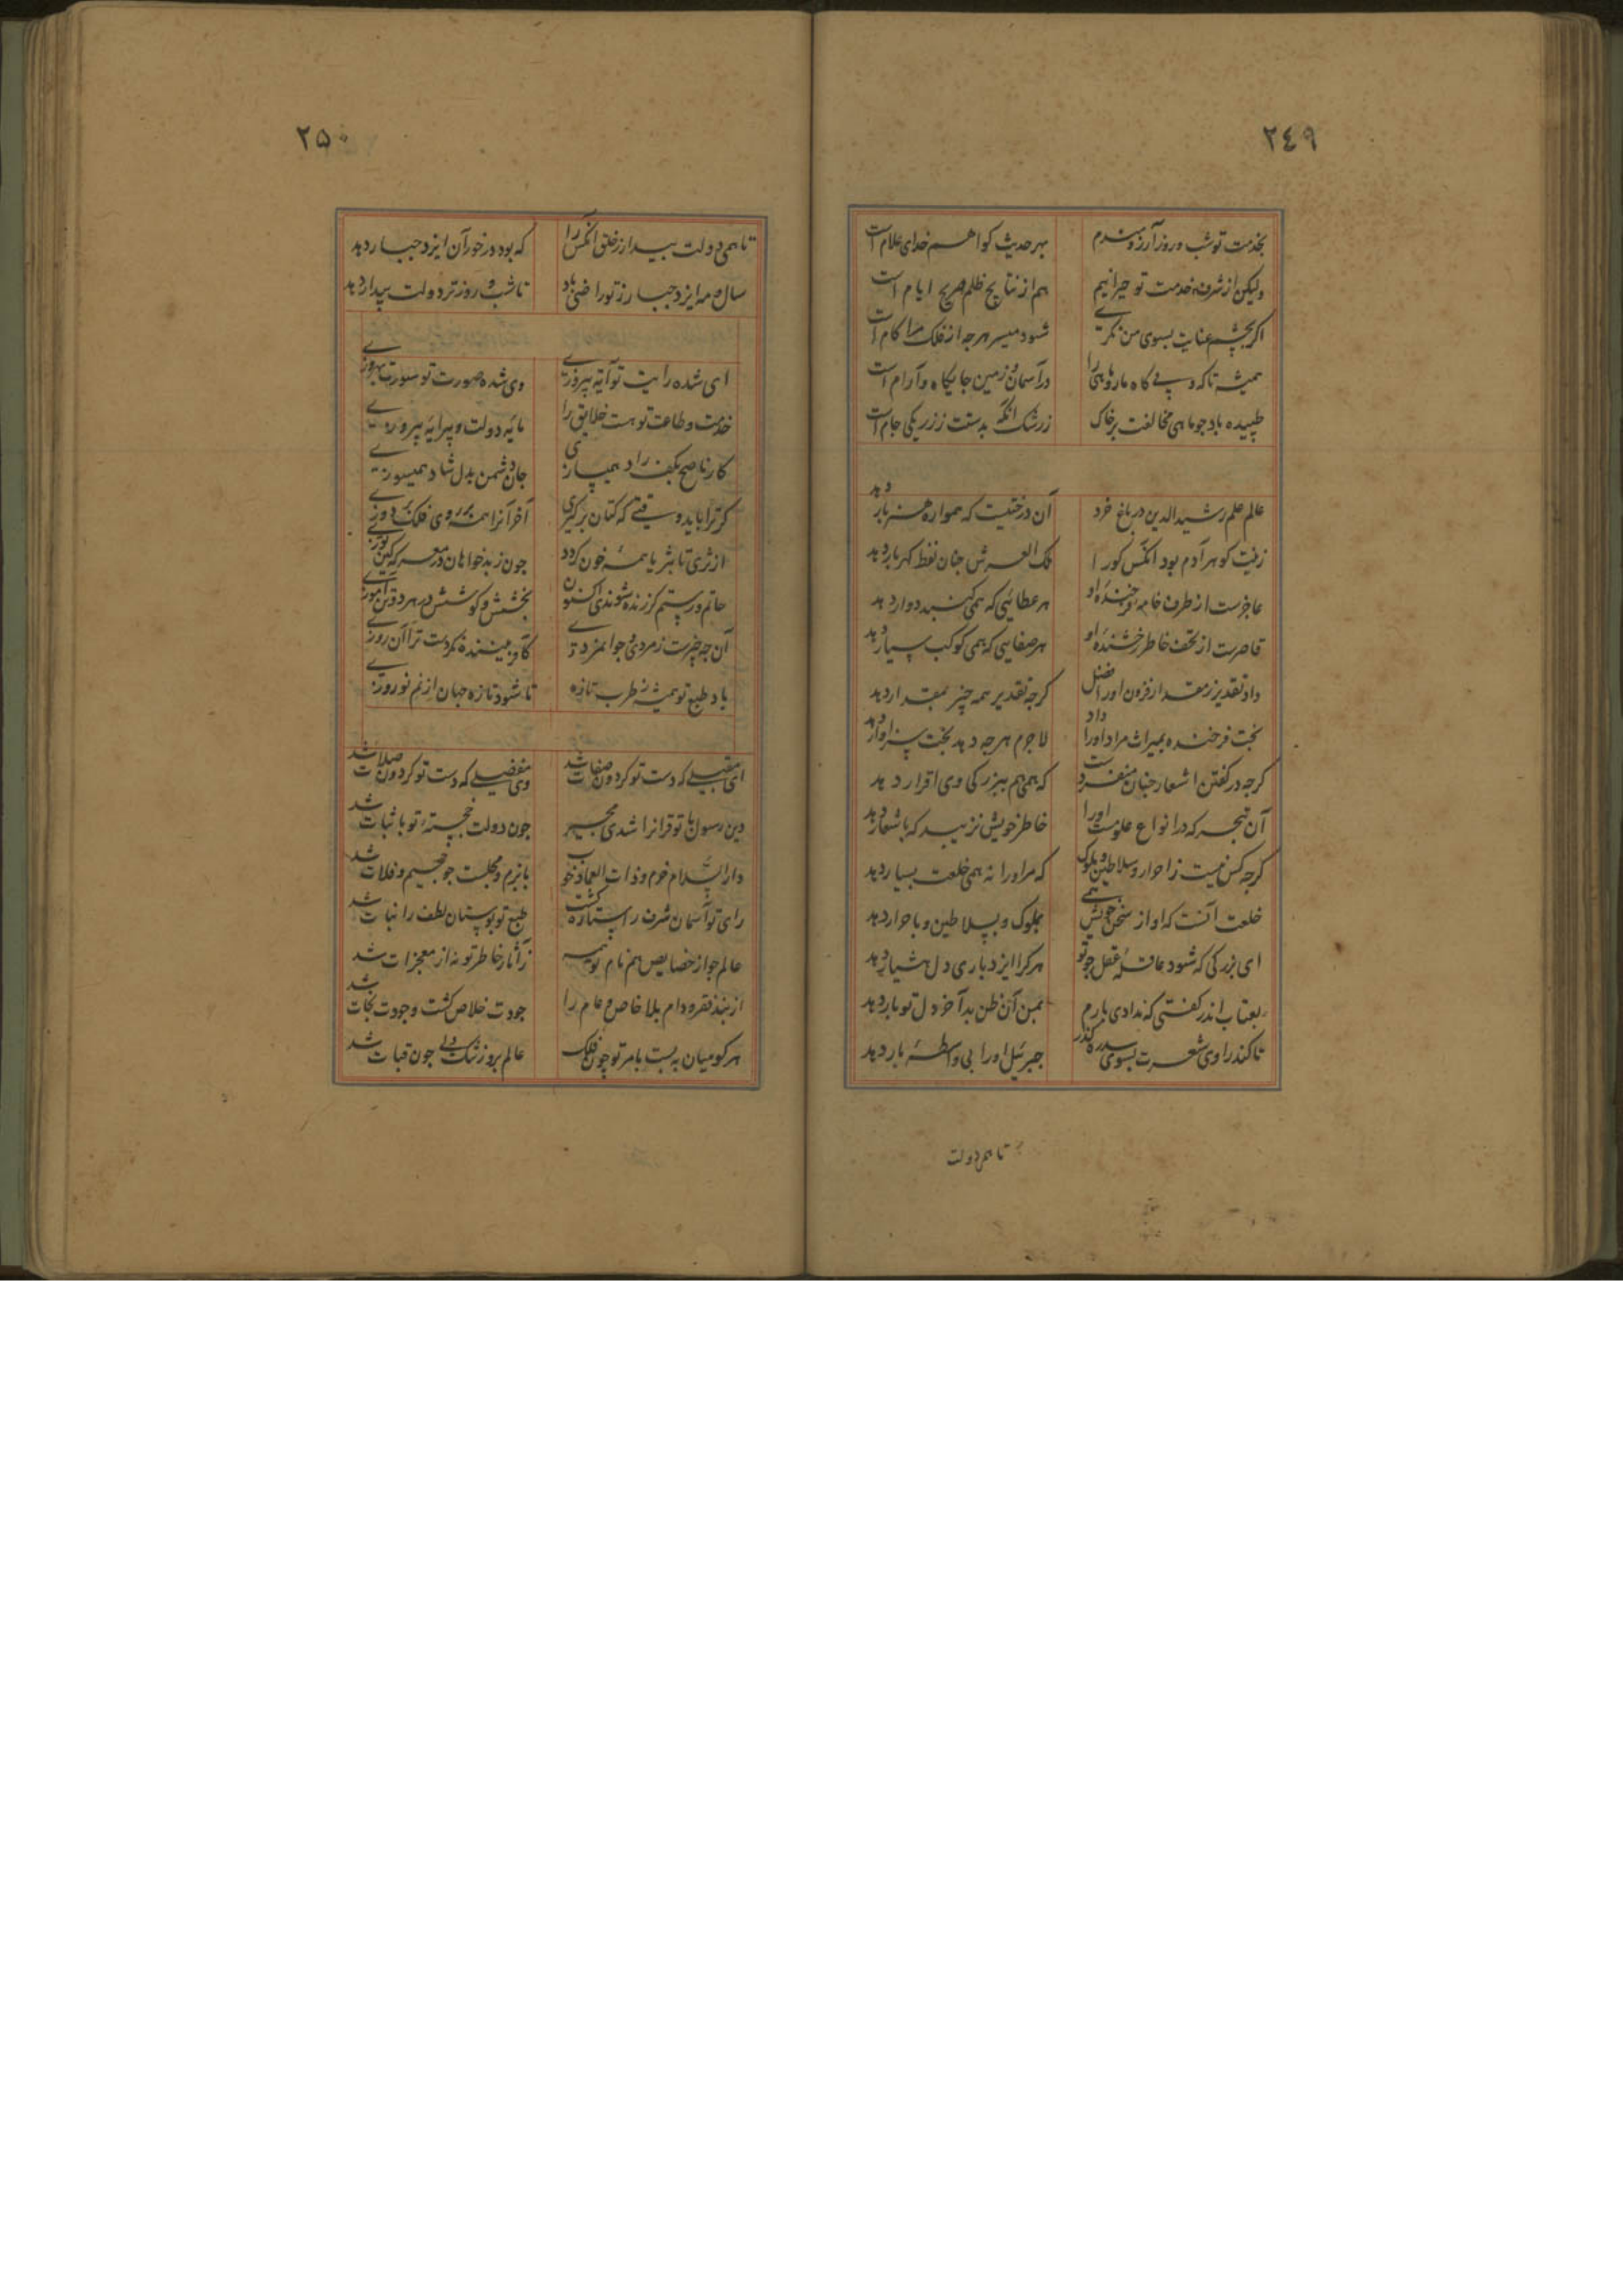 ٢٤٩
بخدمت تو شب و روز آرزومندم بهر حدیث کواهم خدای علام است
ولیکن از شرف خدمت تو حیرانیم هم از نتایج ظلم صریح ایام است
اکر بچشم عنایت بسوی من نکری شود میسر هرجه از فلک مرا کام است
همیشه تا که و مار و ماهی را در آسمان و زمین جایکاه و آرام است
طپیده باد جو ماهی مخالفت بر خاک ز رشک آنکه بدستت ز زر یکی جام است
عالم علم رشید الدین در باغ خرد آن درختیت که همواره هنر بار دهد
زینت کوهر آدم بود آنکس کورا فلک العرش جنان نفظ کهربار دهد
عاجزست از طرف خامه فرخنده او هر عطائی که همی کنبد دوار دهد
قاصرست از تحف خاطر رخشنده او هر صفایی که همی کوکب سیار دهد
داد تقدیر ز مقدار فزون اورا فضل کرجه تقدیر همه چیز بمقدار دهد
بخت فرخنده بمیراث مراد اورا داد لاجرم هرجه دهد بخت سزاوار دهد
کرجه در کفتن اشعار جنان منفردست که همی هم ببزرکی وی اقرار دهد
آن تبحر که در انواع علومست اورا خاطر خویش نزیبد که باشعار دهد
کرجه کس نیست ز احرار و سلاطین و ملوک که مر اورا نه همی خلعت بسیار دهد
خلعت آنست که او از سخن خویش همی بملوک و بسلاطین و باحرار دهد
ای بزرکی که شود عاقله عقل جو تو هرکرا ایزد باری دل هشیار دهد
بعتاب اندر کفتی که ندادی بارم بمن آن ظن بد آخر دل تو بار دهد
تا کند راوی شعرت بسوی سدره کذر جبرئیل اورا بی واسطه بار دهد
تا همی دولت
٢٥٠
تا همی دولت بیدار ز خلق آنکس را که بود در خور آن ایزد جبار دهد
سال و مه ایزد جبار ز تو راضی باد تا شب و روز ترا دولت بیدار دهد
ای شده رایت تو آیه پیروزی وی شده صورت تو سورت بهروزی
خدمت و طاعت تو هست خلایق را مایه دولت و پیرایه پیروزی
کار ناصح بکف راد همیسازی جان دشمن بدل شاد همیسوزی
کر ترا باید وقتی که کتان برکیری آخر آنرا همه بر روی فلک دوزی
از ثری تا بثریا همه خون کردد جون ز بدخواهان در معرکه کین توزی
حاتم و رستم کر زنده شوندی اکنون بخشش و کوشش در هر دو تن آموزی
آن جه چیزست ز مردی و جوانمردی کافریننده نکردست ترا آن روزی
باد طبع تو همیشه ز طرب تازه تا شود تازه جهان از نم نوروزی
ای مقبلی که دست تو کردون صفات شد وی مفضلی که دست تو کردون صلات شد
دین رسول با تو قرانرا شدی مجیر جون دولت خجسته تو با ثبات شد
دار السلام خرم و ذات العماد خوب با بزم و مجلست جو جحیم و فلات شد
رای تو آسمان شرف را ستاره کشت طبع تو بوستان لطف را نبات شد
عالم جو از خصایص هم نام تو بمیر ز آثار خاطر تو نه از معجزات شد
از بند فقر و دام بلا خاص و عام را جودت خلاص کشت و وجودت نجات شد
هرکو میان به بست بامر تو چون فلک عالم بروز تنک دلی جون قبات شد